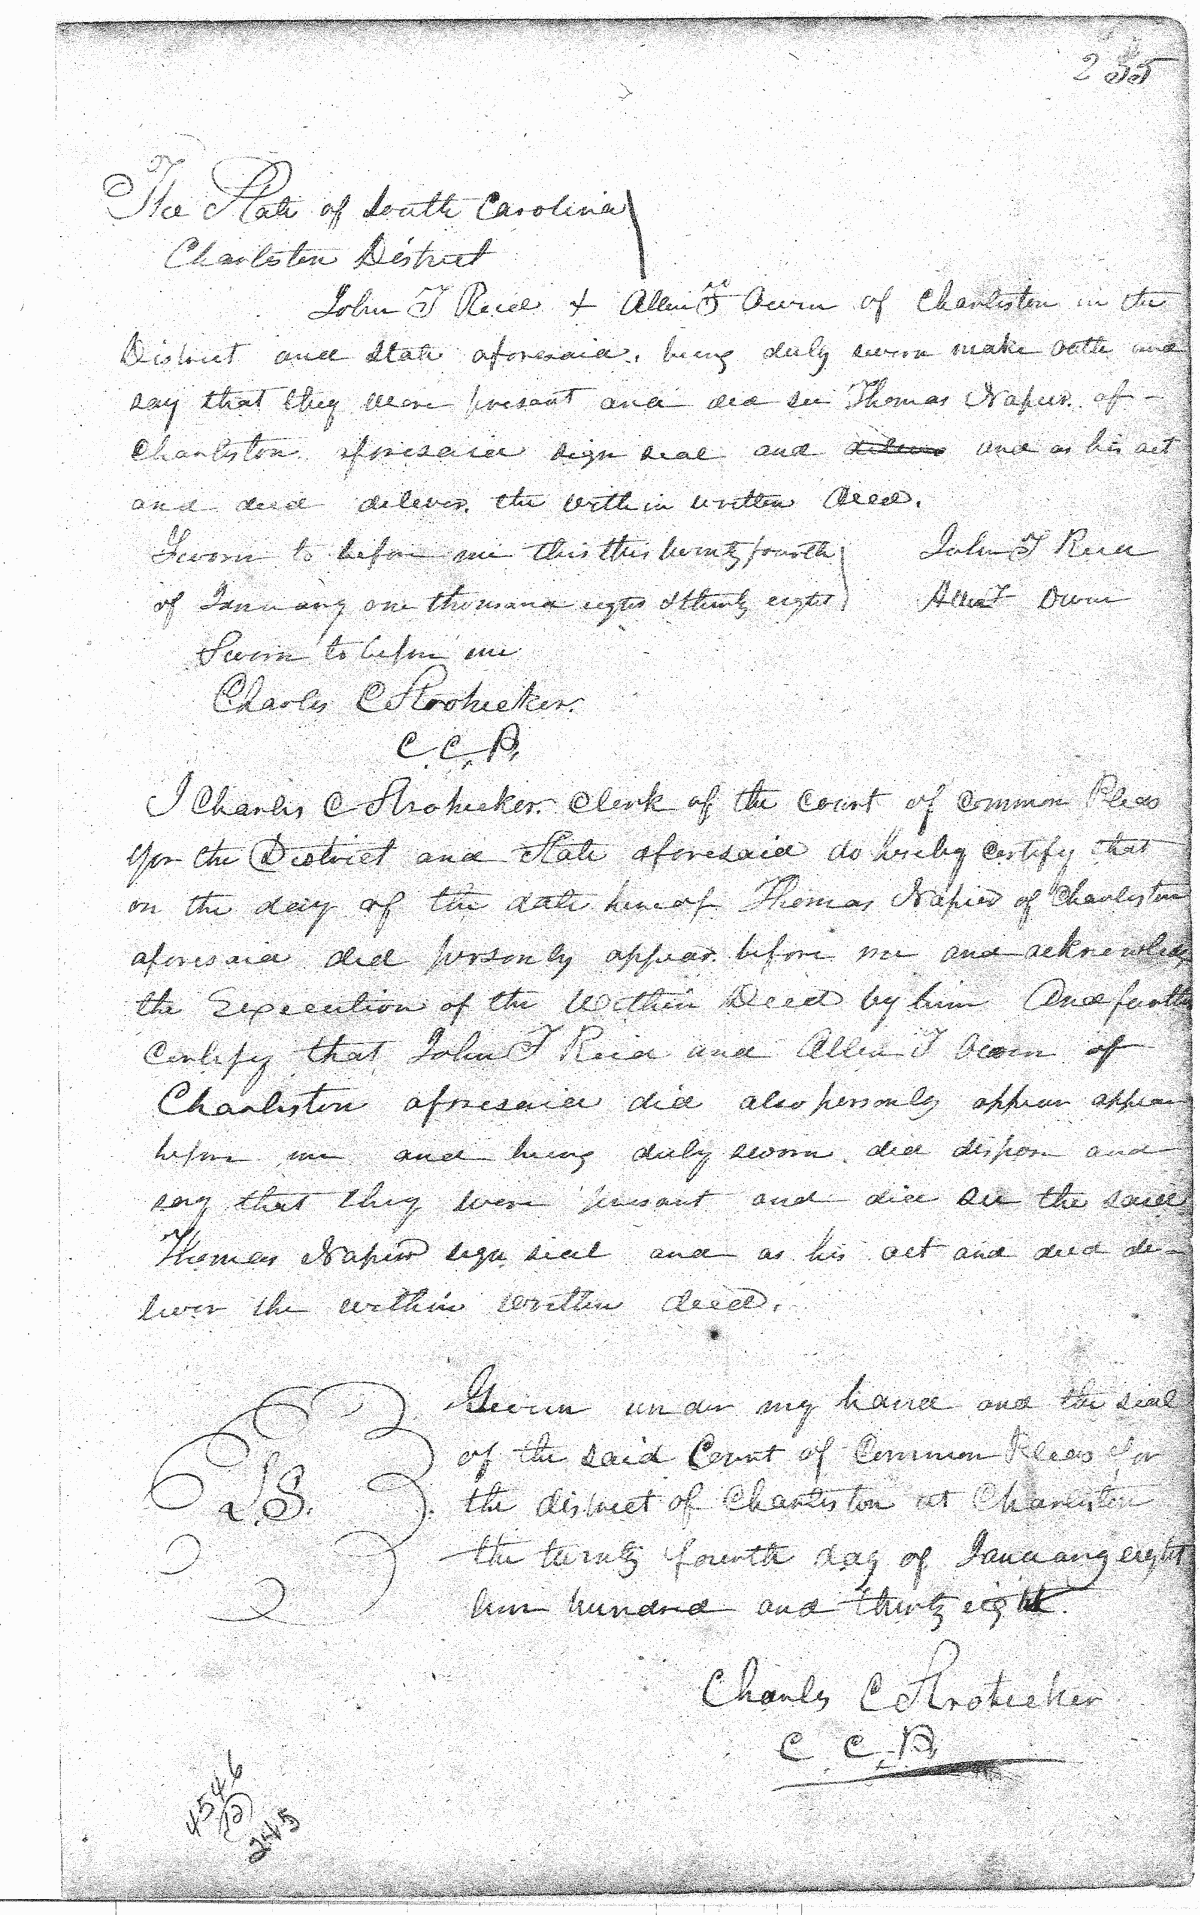 255
The State of South Carolina
Charleston District
John T Reid & Allen T Owen of Charleston in the
District and State aforesaid, being duly sworn make oath and
say that they were present and did see Thomas Napier of
Charleston aforesaid sign seal and deliver and as his act
and deed deliver the within written deed.
Sworn to before me this this twenty fourth John T Reid
of January one thousand eight & thirty eight Allen T Owen
Sworn to before me
Charles C Strohecker.
C. C. P.
I Charles C Strohecker Clerk of the Court of Common Pleas
for the District and State aforesaid do hereby certify that
on the day of the date hereof Thomas Napier of Charleston
aforesaid did personly appear before me and acknowledg
the Execution of the Within Deed by him And further
Certify that John T Reid and Allen T Owen of
Charleston aforesaid did also personly appear appear
before me and being duly sworn did depose and
say that they were present and did see the said
Thomas Napier sign seal and as his act and deed de-
liver the within written deed.
Given under my hand and the seal
of the said Court of Common Pleas for
L.S. the district of Charleston at Charleston
the twenty fourth day of January eight
hundred and thirty eight.
Charles C Strohecker
C. C. P.
4546
(12)
245